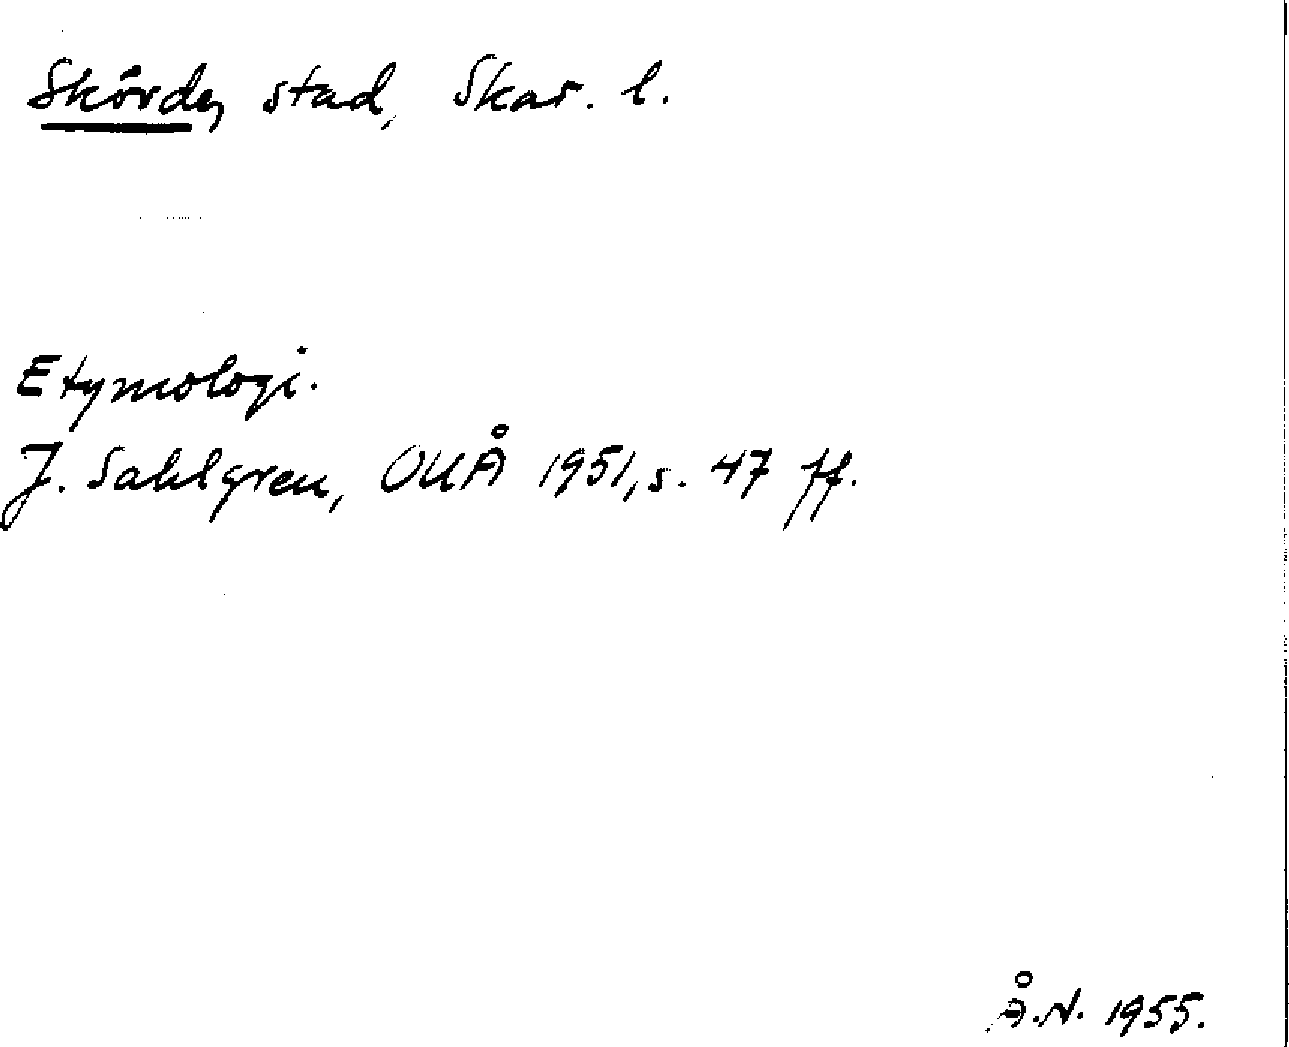 Skövde, stad, Skar. l.
Etymologi.
J. Sahlgren, OUÅ 1951, s. 47 ff.
Å.N. 1955.